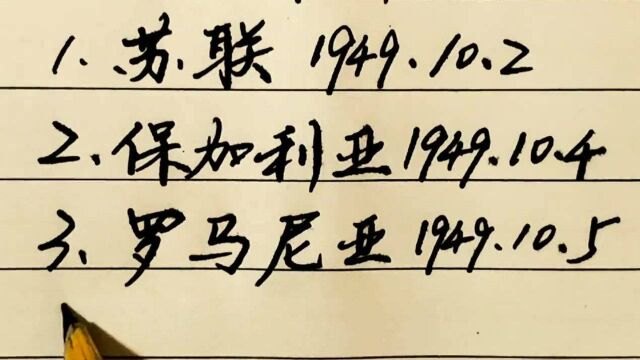 1.苏联 1949.10.2
2、保加利亚 1949.10.4
3、罗马尼亚 1949.10.5